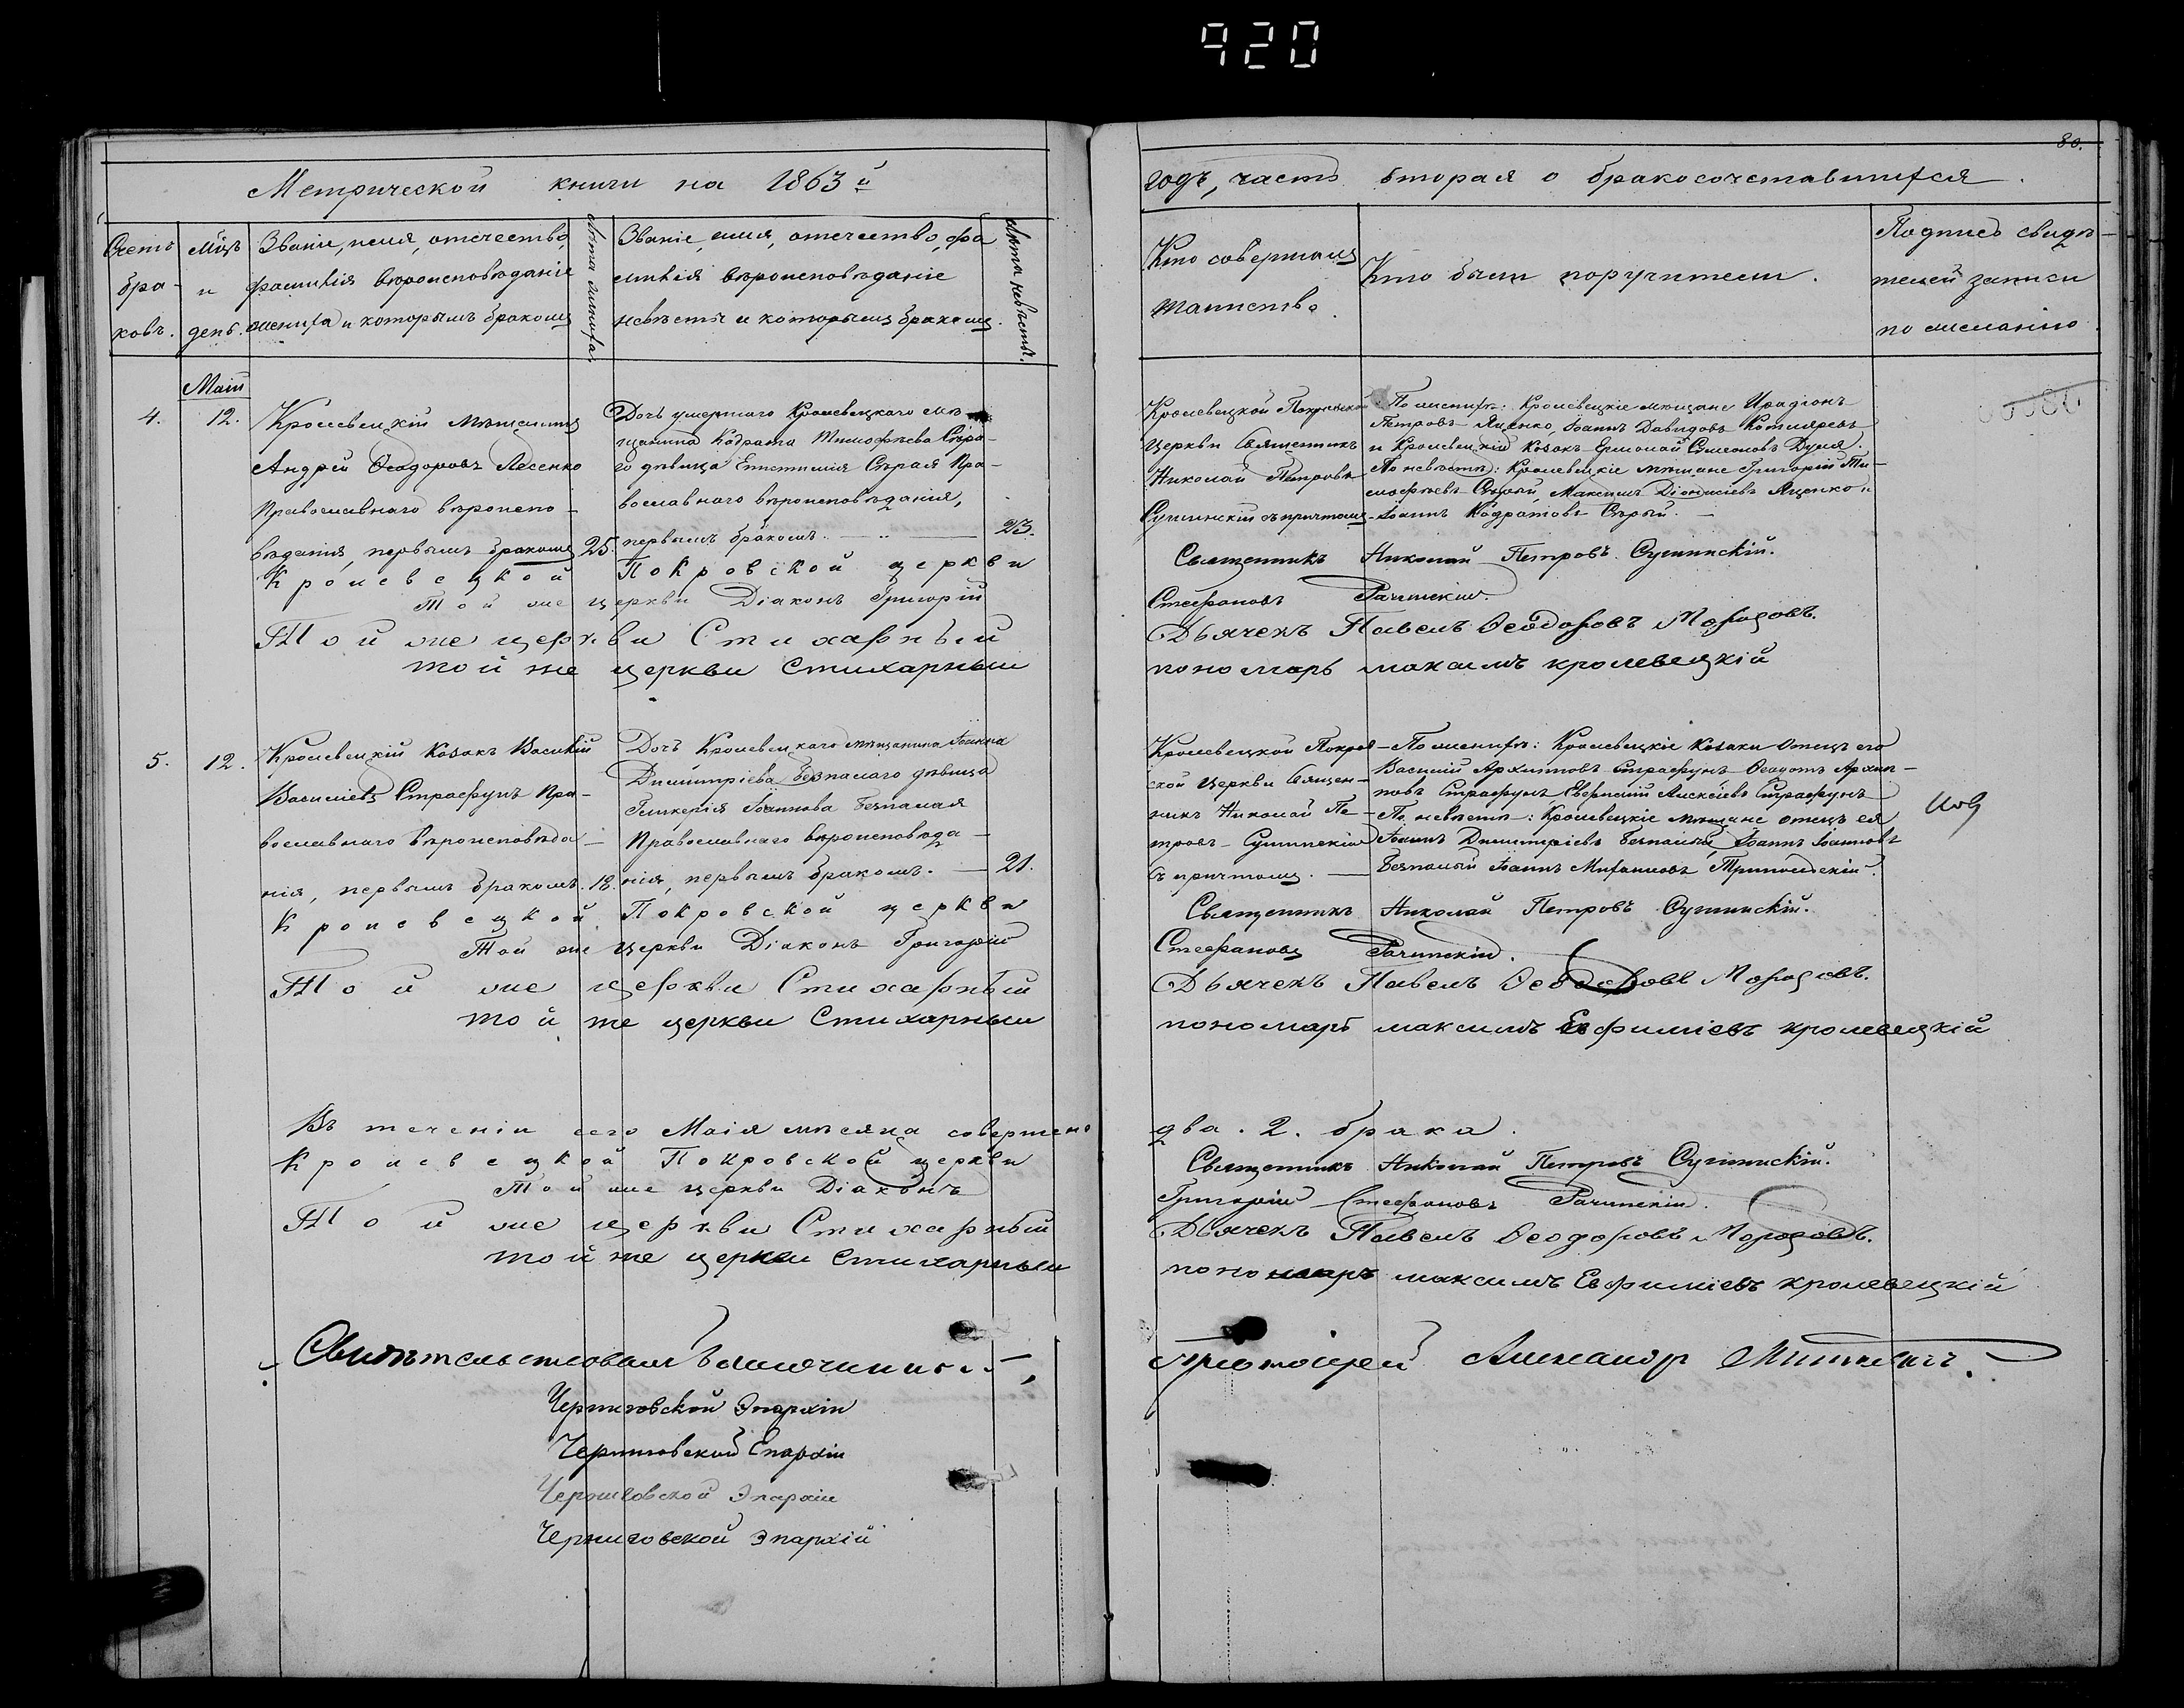 920
80.
Метрической книги на 1863й
годъ, часть вторая о бракосочетавшихся.
Счетъ бра-ковъ.
Мѣцъ и день.
Званіе, имя, отечество,
фамилія вѣроисповѣданіе
жениха и которымъ бракомъ
Лѣта жениха.
Званіе, имя, отечество, фа
милія вѣроисповѣданіе
невѣсты и которымъ бракомъ.
Лѣта невѣсты.
Кто совершалъ
таинство.
Кто были поручители.
Подпись свидѣ-
телей записи
по желанію
Маій
4.
12.
Кролевецкій мѣщанинъ
Андрей Ѳеодоровъ Лесенко
Православнаго вѣроиспо-
вѣданія, первымъ бракомъ
25.
Дочь умершаго Кролевецкаго мѣ-
щанина Кодрата Тимофѣева Сѣра-
го дѣвица Епистимія Сѣрая Пра-
вославнаго вѣроисповѣданія,
первымъ бракомъ.
23.
Кролевецкой Покровской
церкви Священникъ
Николай Петровъ
Сушинскій съ причтомъ
По женихѣ: Кролевецкіе мѣщане Иродіонъ
Петровъ Яценко, Іоаннъ Давидовъ Котляревъ
и Кролевецкій Козакъ Ермолай Симеоновъ Дуля.
По невѣстѣ: Кролевецкіе мѣщане Григорій Ти-
мофѣевъ Сѣрый, Максимъ Діонисіевъ Яценко и
Іоаннъ Кодратовъ Сѣрый.
Кролевецкой Покровской церкви Священникъ Николай Петровъ Сушинскій.
Той же церкви Діаконъ Григорій Стефановъ Рачинскій.
Той же церкви Стихарный Дьячекъ Павелъ Ѳеодоровъ Морозовъ.
той же церкви Стихарный пономарь максимъ кролевецкій
5.
12.
Кролевецкій Козакъ Василій
Василіевъ Страфунъ Пра-
вославнаго вѣроисповѣда-
нія, первымъ бракомъ.
18.
Дочь Кролевецкаго мѣщанина Іоанна
Димитріева Безпалаго дѣвица
Гликерія Іоаннова Безпалая
Православнаго вѣроисповѣда-
нія, первымъ бракомъ.
21.
Кролевецкой Покров-
ской церкви Священ-
никъ Николай Пе-
тровъ Сушинскій
съ причтомъ.
По женихѣ: Кролевецкіе Козаки отецъ его
Василій Архиповъ Страфунъ Ѳеодотъ Архип-
повъ Страфунъ, Евфимій Алексѣевъ Страфунъ
По невѣстѣ: Кролевецкіе мѣщане отецъ ея
Іоаннъ Димитріевъ Безпалый, Іоаннъ Іоанновъ
Безпалый Іоаннъ Михаиловъ
Кролевецкой Покровской церкви Священникъ Николай Петровъ Сушинскій.
Той же церкви Діаконъ Григорій Стефановъ Рачинскій.
Той же церкви Стихарный Дьячекъ Павелъ Ѳеодоровъ Морозовъ.
той же церкви Стихарный пономарь максимъ Евфиміевъ кролевецкій
Въ теченіи сего Маія мѣсяца совершено два. 2. брака.
Кролевецкой Покровской церкви Священникъ Николай Петровъ Сушинскій.
Той же церкви Діаконъ Григорій Стефановъ Рачинскій.
Той же церкви Стихарный Дьячекъ Павелъ Ѳеодоровъ Морозовъ.
той же церкви Стихарный пономарь максимъ Евфиміевъ кролевецкій
Свидѣтельствовалъ Благочинный, протоіерей Александръ
Черниговской Эпархіи
Черниговской Епархіи
Черниговской Эпархіи
Черниговской Эпархій